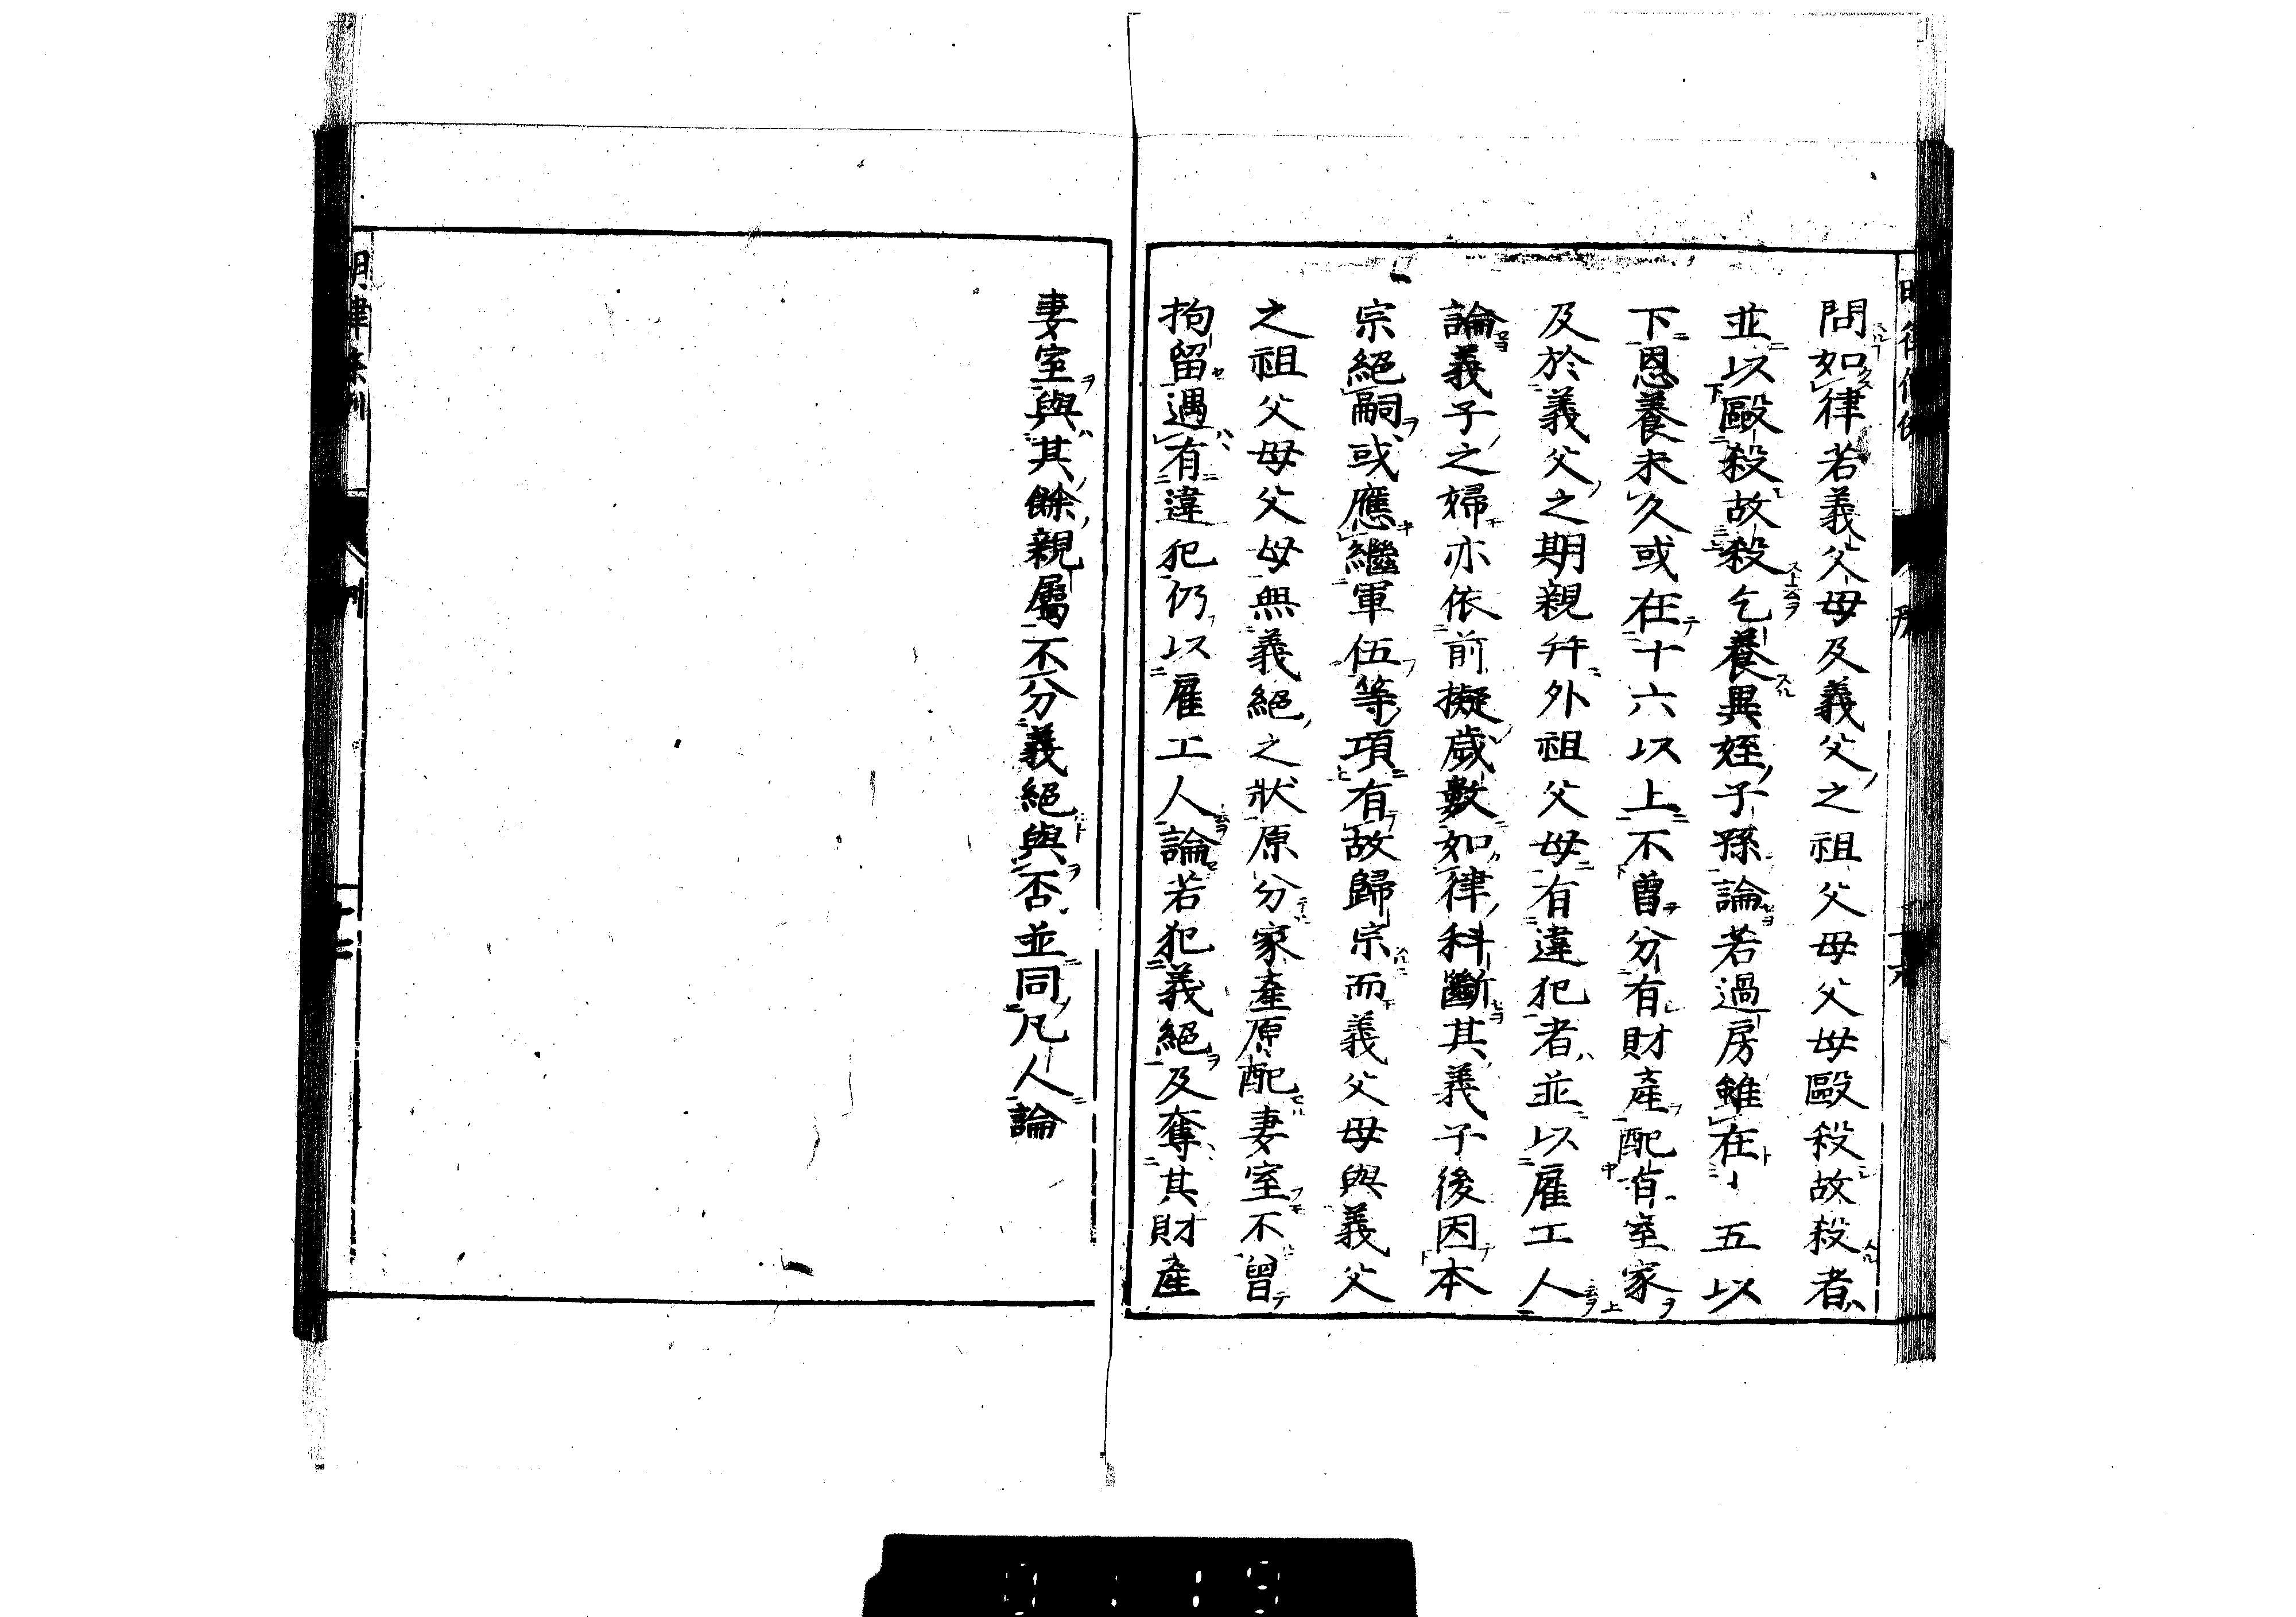 問如律若義父母及義父之祖父母父母毆殺故殺者
並以毆殺故殺乞養異姓子孫論若過房雖在十五以
下恩養未久或在十六以上不曾分有財產配有室家
及於義父之期親并外祖父母有違犯者並以雇工人
論義子之婦亦依前擬歲數如律科斷其義子後因本
宗絕嗣或應繼軍伍等項有故歸宗而義父母與義父
之祖父母父母無義絕之狀原分家產原配妻室不曾
拘留遇有違犯仍以雇工人論若犯義絕及奪其財產
妻室與其餘親屬不分義絕與否並同凡人論